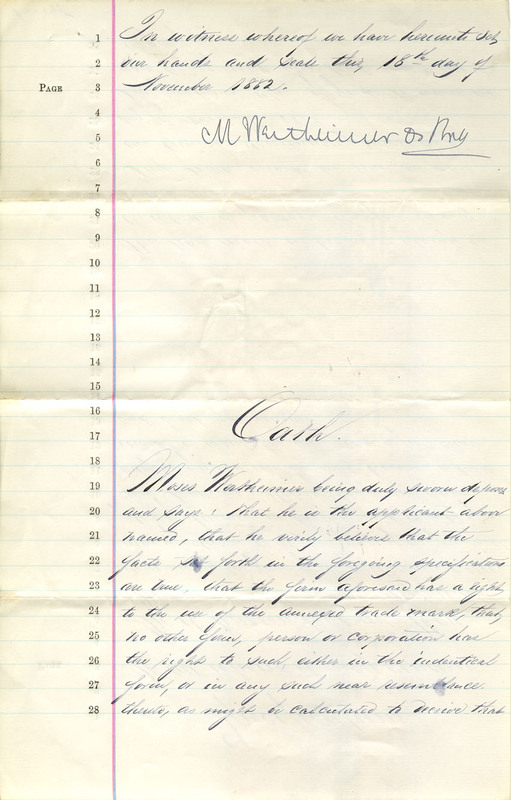 1 In witness whereof we have hereunto set
2 our hands and seals this, 18th day of
PAGE 3 November 1882.
4
5 M Wertheimer & Bro
6
7
8
9
10
11
12
13
14
15
16
17 Oath.
18
19 Moses Wertheimer being duly sworn deposes
20 and says: that he is the applicant above
21 named, that he verily believes that the
22 facts set forth in the foregoing specifications
23 are true, that the firm aforesaid has a right
24 to the use of the annexed trade mark, that
25 no other firm, person or corporation has
26 the right to such, either in the indentical
27 form, or in any such near resemblance
28 thereto, as might be calculated to deceive that